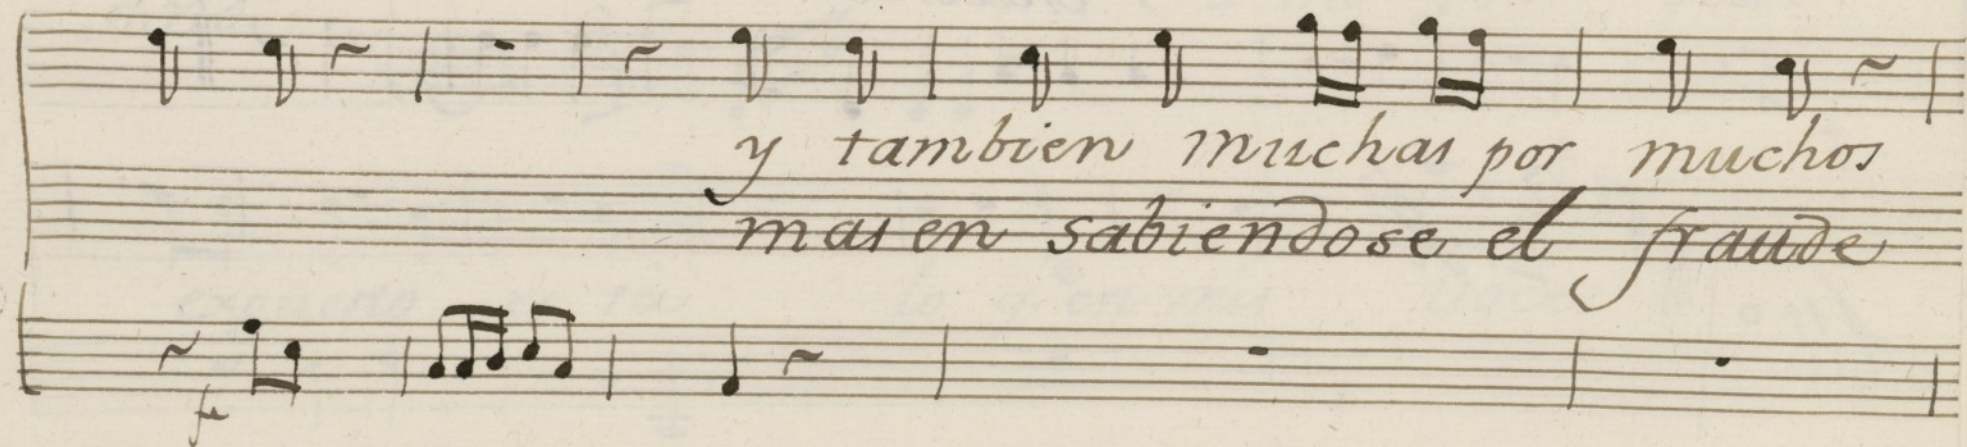 y tambien muchas por muchos
mas en sabiendose el fraude
f